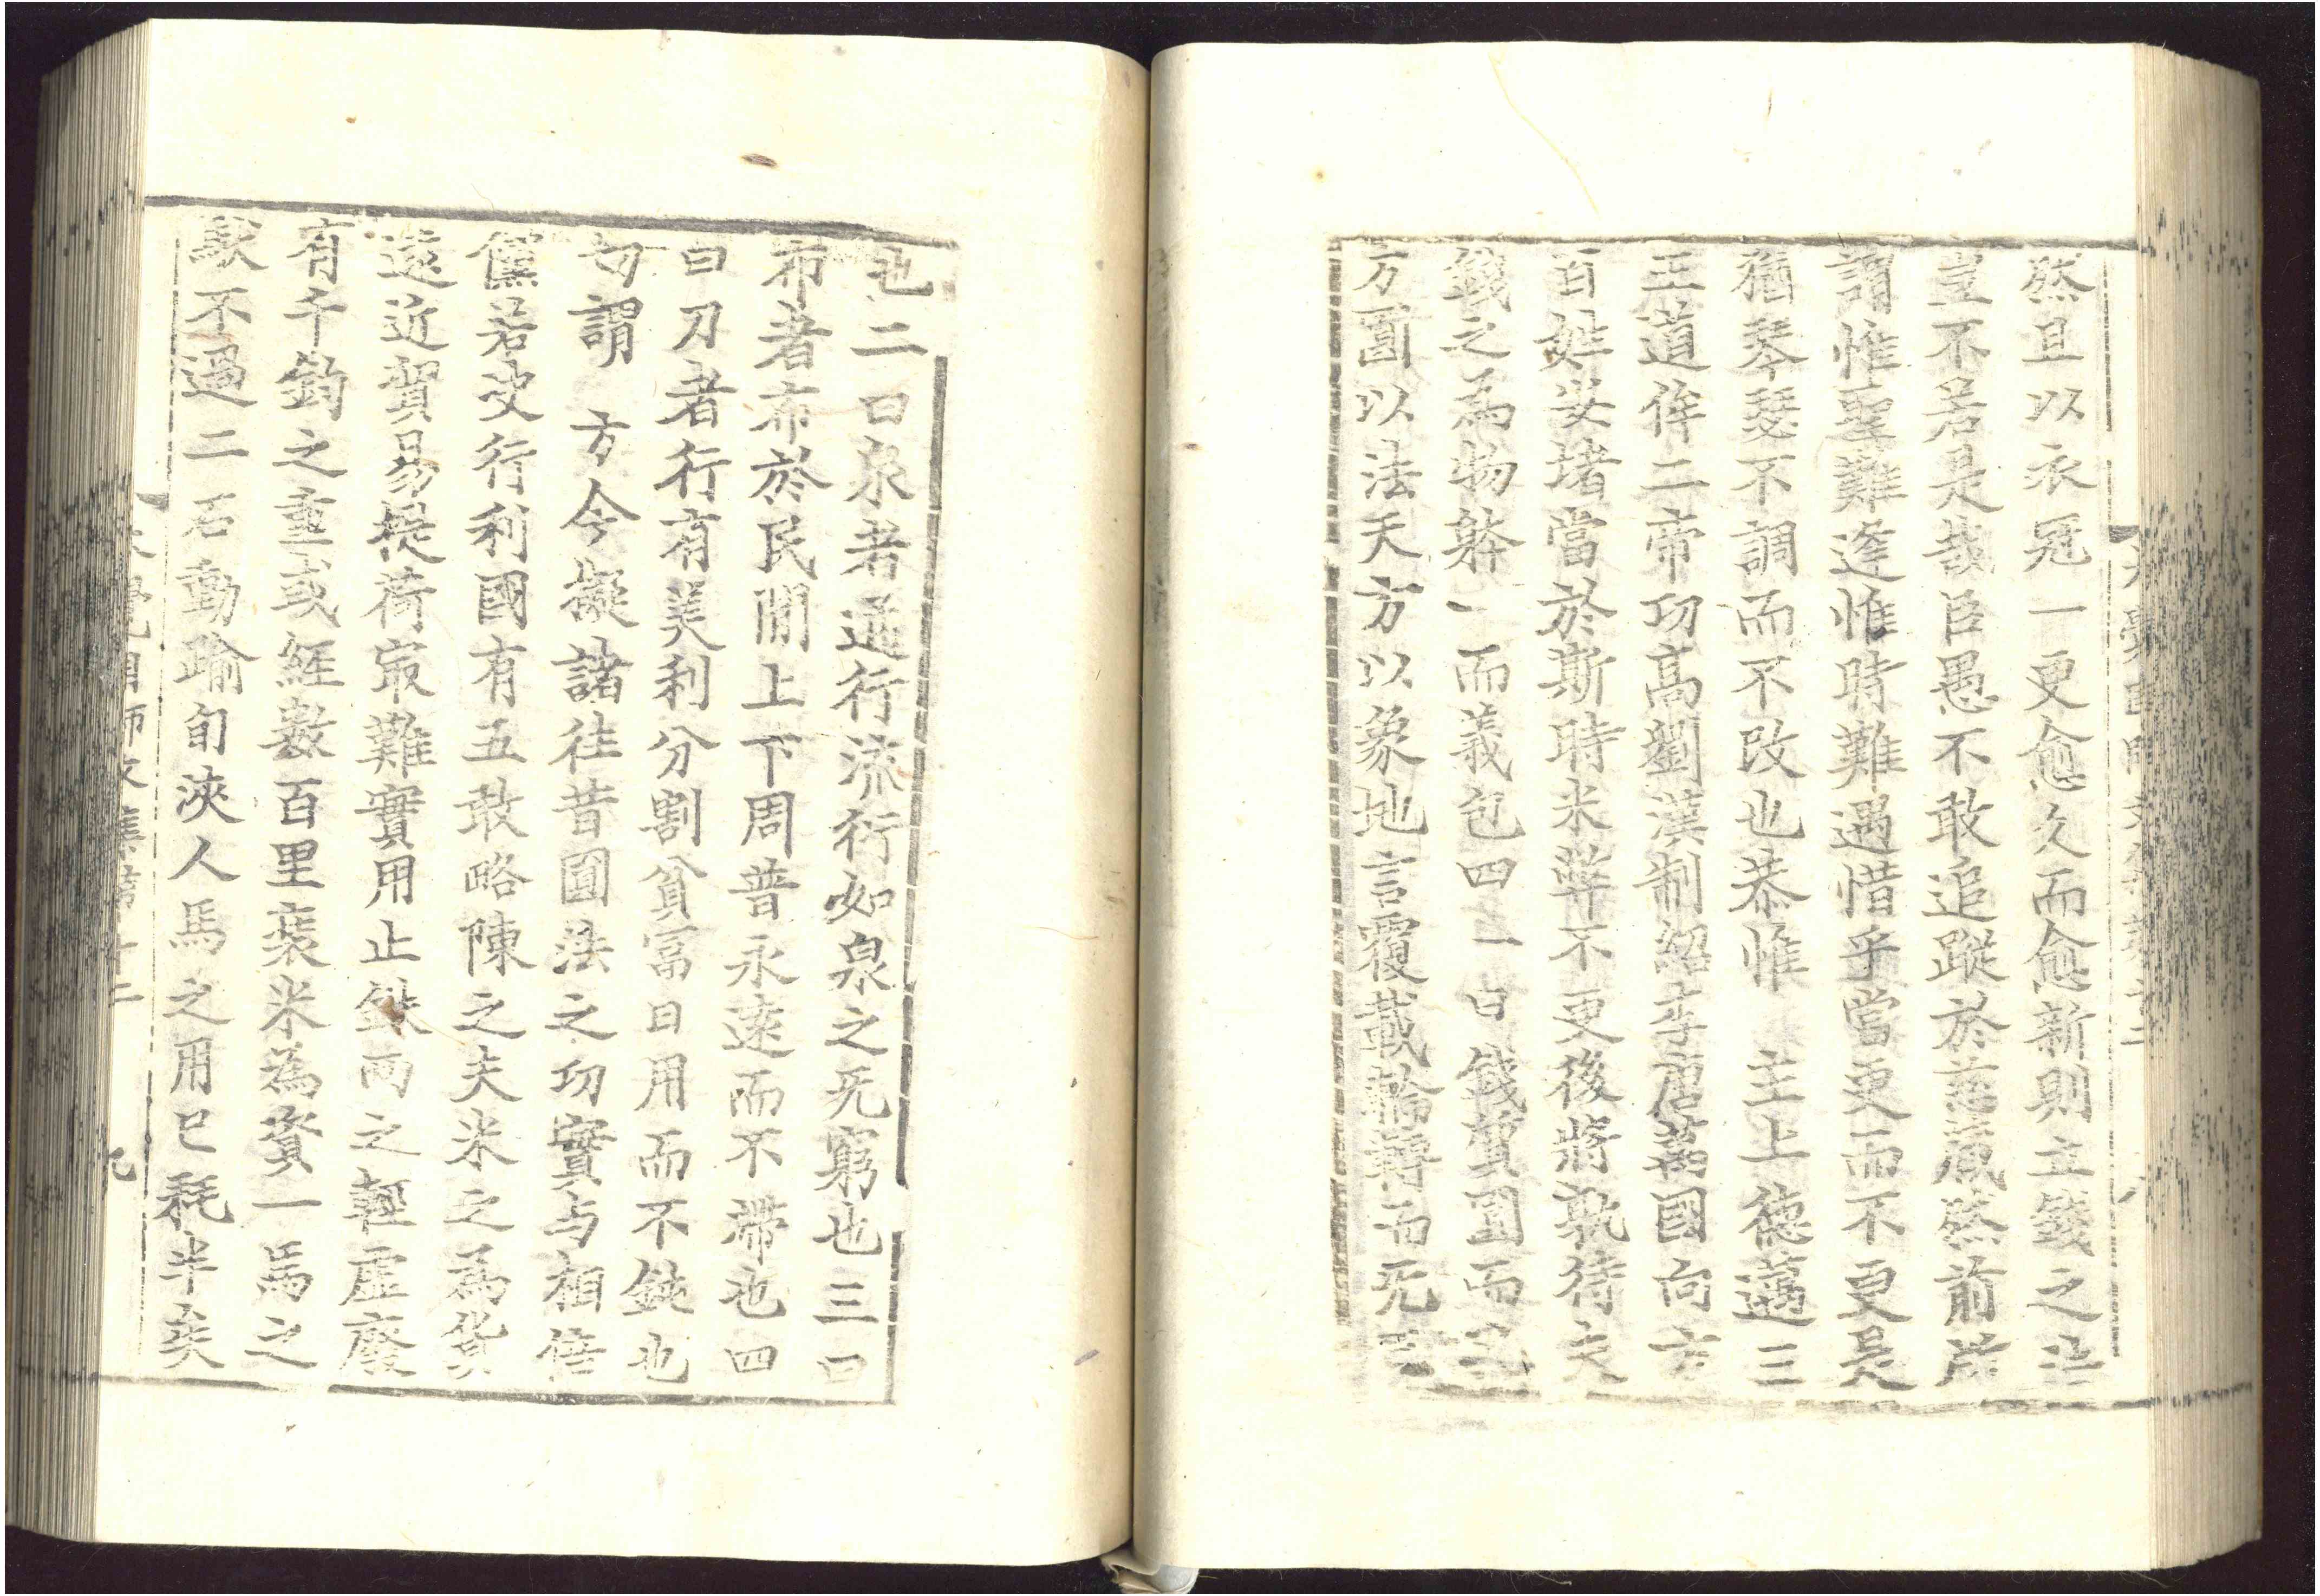 然且以衣冠一更愈久而愈新則立錢之法
豈不若是哉臣愚不敢追蹤於
謂惟聖難逢惟時難遇惜乎當更而不更是
猶琴瑟不調而不改也恭惟 主上德邁三
王道侔二帝功高劉漢制紹李唐萬國向方
百姓安堵當於斯時米弊不更後將孰待夫
錢之為物軆一而義包四一曰錢質圓而
方圓以法天方以象地言覆載輪轉而无
也二曰泉者通行流行如泉之无窮也三曰
布者布於民間上下周普永遠而不滯也四
曰刀者行有美利分割貧冨日用而不鈍也
切謂 方今擬諸往昔圓法之功實与相倍
儻若史行利國有五敢略陳之夫米之為貨
遠近貿易提荷㝡難實用止銖兩之輕虛廢
有千鈞之重或經數百里裹米為資一馬之
䭾不過二石動踰旬浹人馬之用已耗半矣
大覺國師文集第十二
九